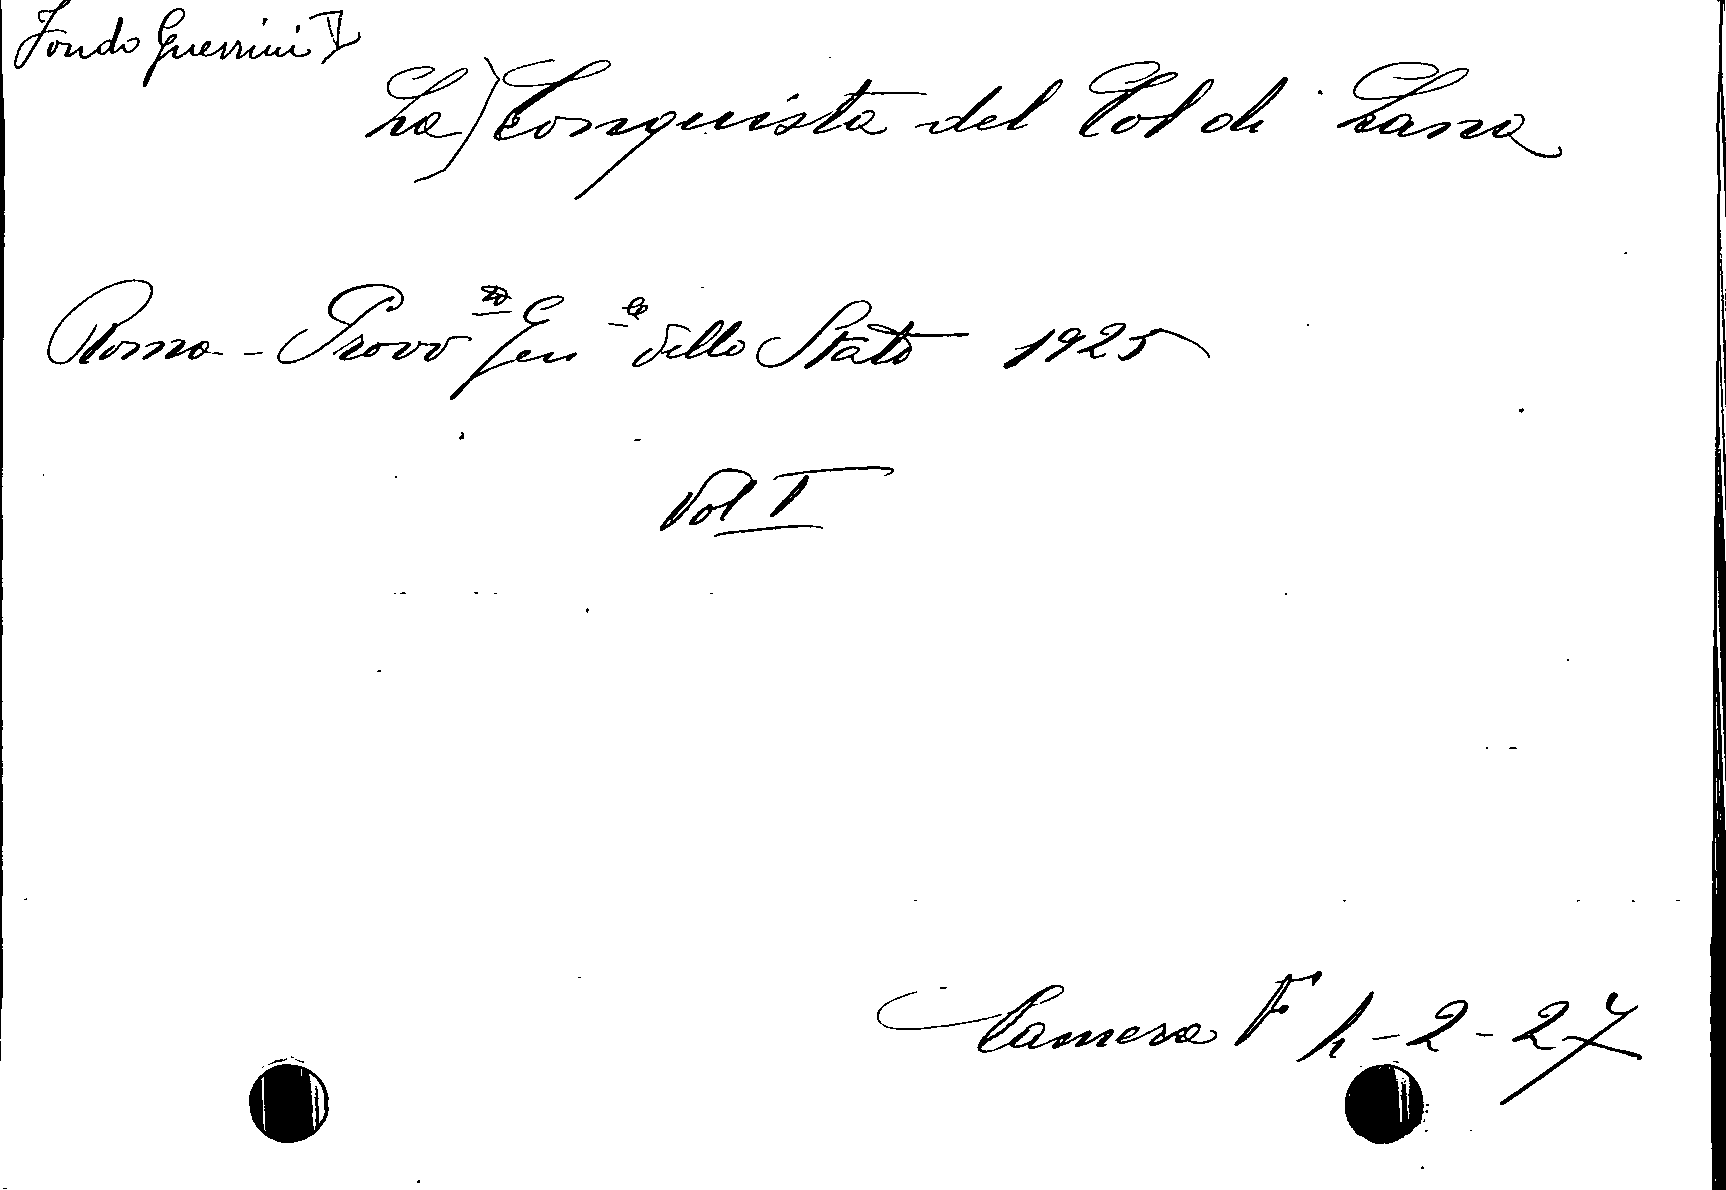 Fondo Guerrini V
La) Conquista del Col di Lana
Roma - Provv to Gen le dello Stato 1925
Vol I
Camera F h-2-27